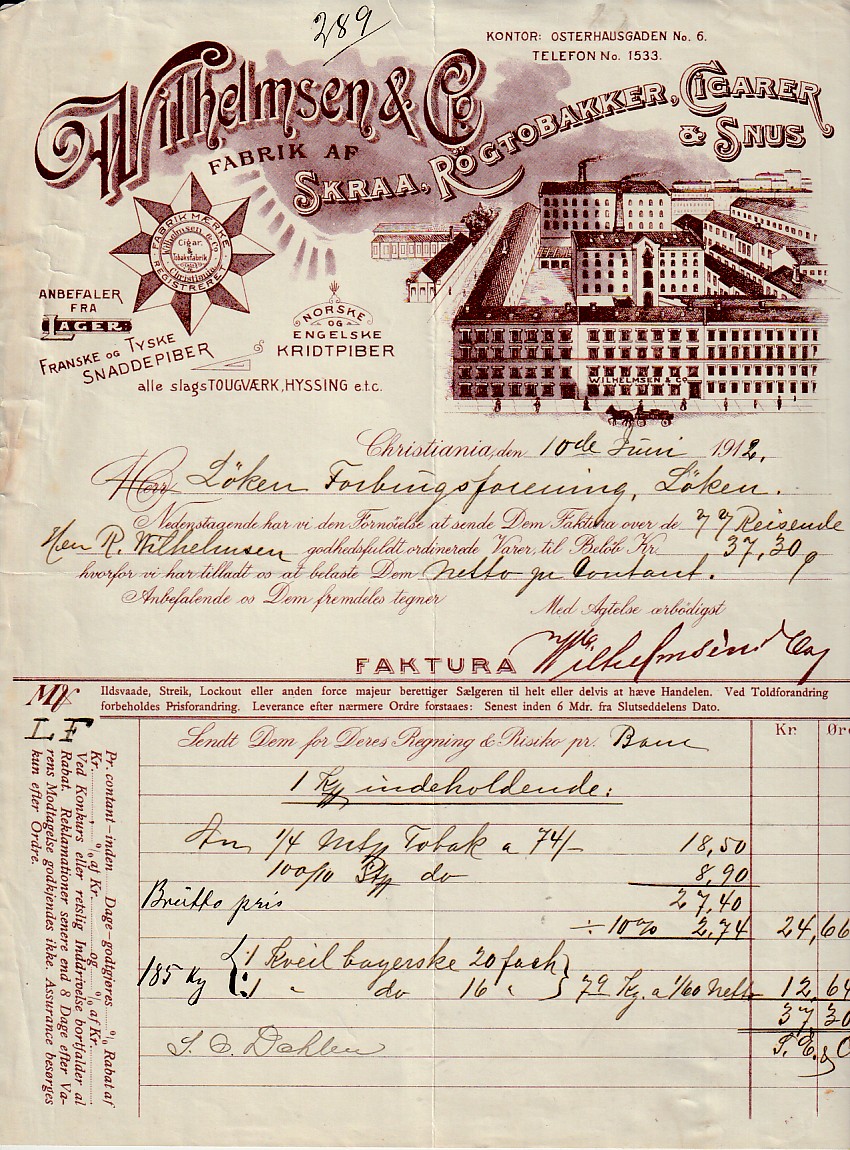 289
KONTOR: OSTERHAUSGADEN No. 6.
TELEFON No. 1533.
Wilhelmsen & Co.
FABRIK AF
SKRAA, RÖGTOBAKKER, CIGARER
& SNUS
FABRIK MÆRKE
Wilhelmsen & Co
Cigar.
&
Tobaksfabrik
Christiania
REGISTRERET
ANBEFALER
FRA
LAGER:
FRANSKE OG TYSKE
SNADDEPIBER
NORSKE
OG
ENGELSKE
KRIDTPIBER
alle slags TOUGVÆRK, HYSSING e.t.c.
WILHELMSEN & Co
Christiania, den 10de Juni 1912.
Herr Löken Forbrugsforening, Löken.
Nedenstaaende har vi den Fornöielse at sende Dem Faktura over de Reisende
Herr R. Wilhelmsen godhedsfuldt ordinerede Varer, til Belöb Kr. 37,30
hvorfor vi har tilladt os at belaste Dem Netto pr Contant.
Anbefalende os Dem fremdeles tegner
Med Agtelse ærbödigst
Wilhelmsen & Co
FAKTURA
Ildsvaade, Streik, Lockout eller anden force majeur berettiger Sælgeren til helt eller delvis at hæve Handelen. Ved Toldforandring
forbeholdes Prisforandring. Leverance efter nærmere Ordre forstaaes: Senest inden 6 Mdr. fra Slutseddelens Dato.
LF
Sendt Dem for Deres Regning & Risiko pr. Bane
Kr. Øre
1 indeholdende:
1/4 Tobak a 74/- 18,50
100/10 do 8,90
Brutto pris 27,40
÷ 10% 2,74 24,66
1 Kveil bayerske 20 fach
185 Kg
1 " do 16 " 79 Kg. a 1/60 Netto 12,64
37 30
S. E. & O
Pr. contant – inden Dage godtgjøres % Rabat af
Kr. , % af Kr. og % af Kr.
Ved Konkurs eller retslig Inddrivelse bortfalder al
Rabat. Reklamationer senere end 8 Dage efter Va-
rens Modtagelse godkjendes ikke. Assurance besørges
kun efter Ordre.